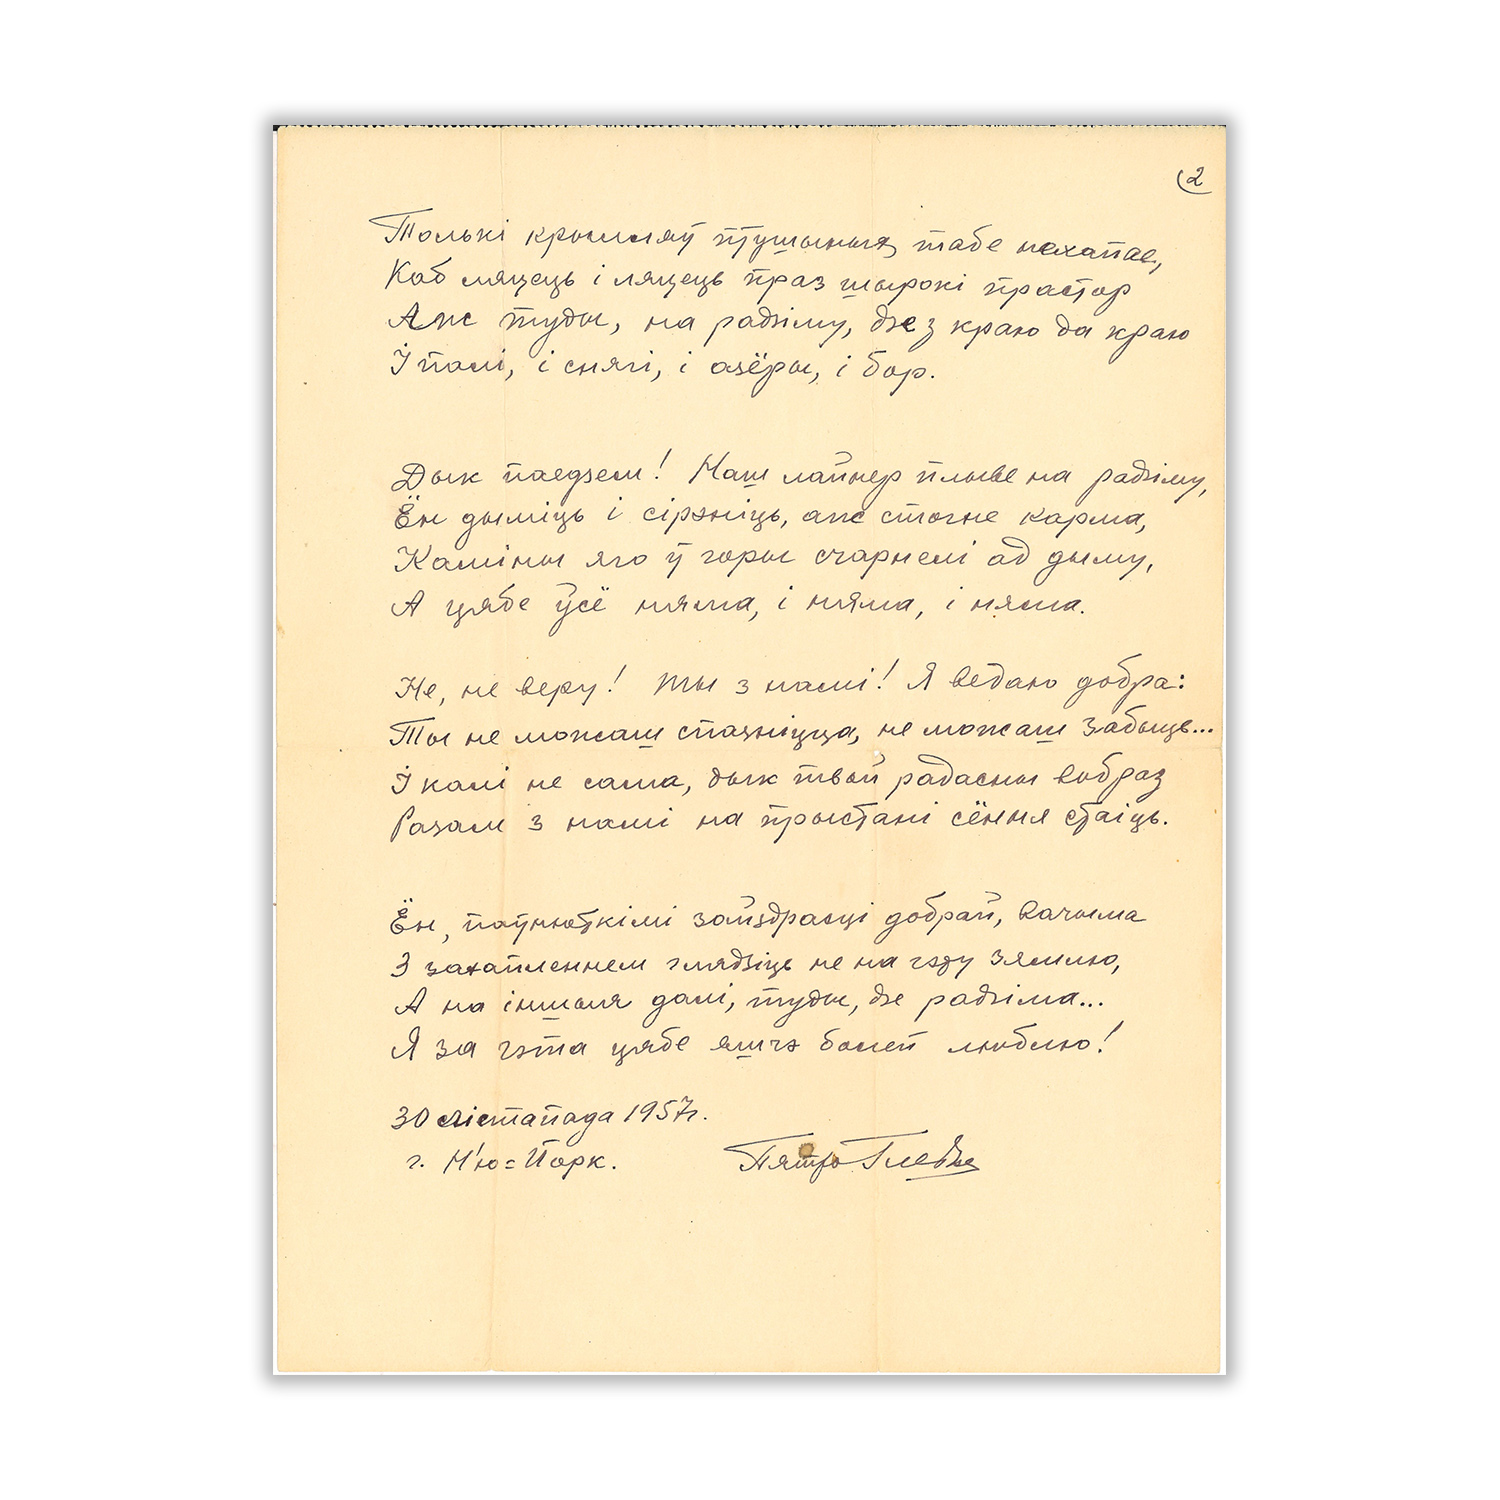 2
Толькі крылляў птушыных табе нехапае,
Каб ляцець і ляцець праз шырокі прастор
Аж туды, на радзіму, дзе з краю да краю
І палі, і снягі, і азёры, і бор.
Дык паедзем! Наш лайнер плыве на радзіму,
Ён дыміць і сірэніць, аж стогне карма,
Каміны яго ў горы счарнелі ад дыму,
А цябе ўсё няма, і няма, і няма.
Не, не веру! Ты з намі! Я ведаю добра:
Ты не можаш спазніцца, не можаш забыць...
І калі не сама, дык твой радасны вобраз
Разам з намі на прыстані сёння стаіць.
Ён, паўнюткімі зайздрасці добрай, вачыма
З захапленнем глядзіць не на гэту зямлю,
А на іншыя далі, туды, дзе радзіма...
Я за гэта цябе яшчэ болей люблю!
30 лістапада 1957г.
г. Н'ю=Йорк. Пятро Глебка